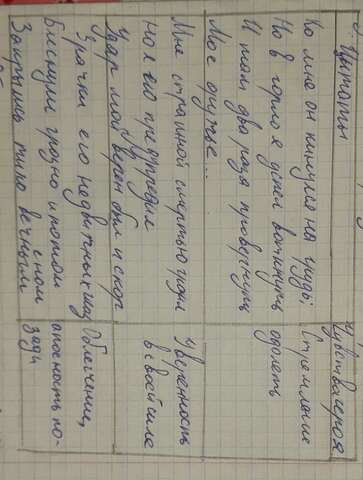 Цитаты
Чувства героя
Ко мне он кинулся на грудь;
Но в горло я успел воткнуть
И там два раза провернуть
Мое оружье...
Стремление
одолеть
Мне страшной смертью грозил
Но я его предупредил
Удар мой верен был и скор
Уверенность
в своей силе
Зрачки его недвижных глаз
Блеснули грозно и потом
Закрылись тихо вечным
сном
Облегчение,
опасность по-
зади